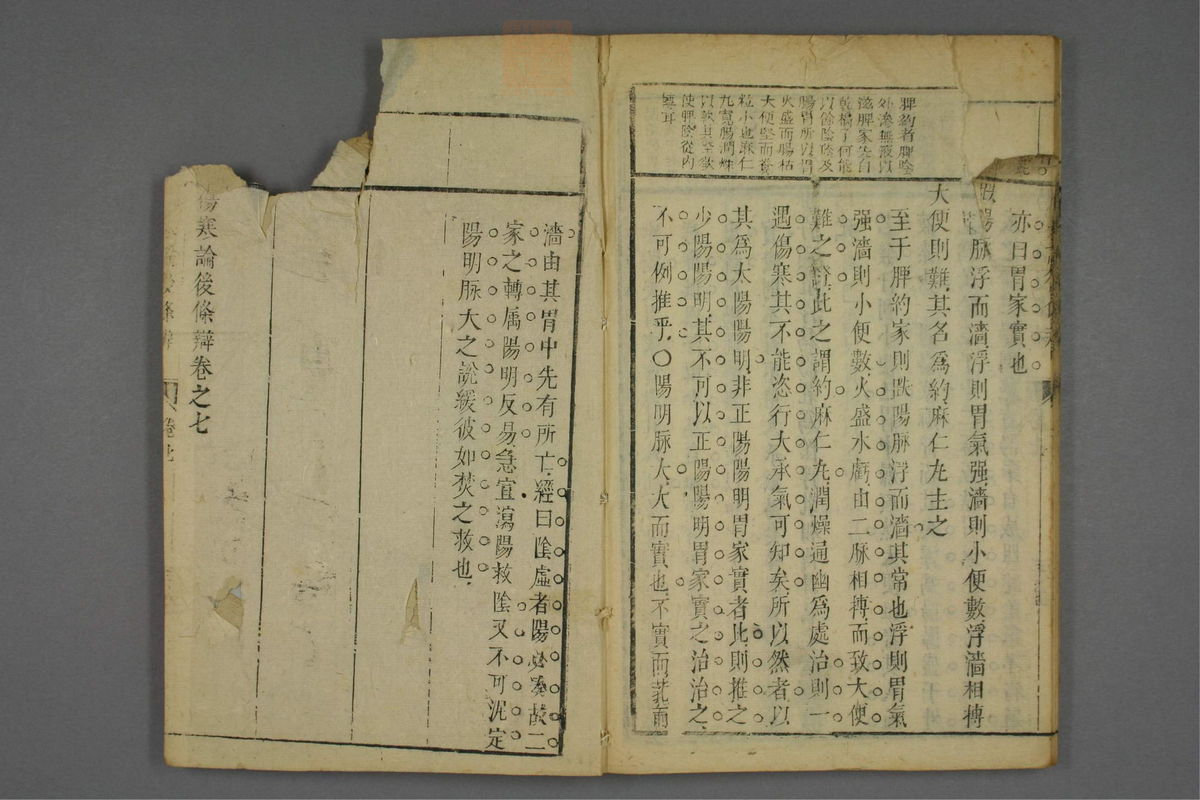 脾約者脾陰
外滲無液以
滋脾家先自
乾槁了何能
以餘陰蔭及
腸胃所以胃
火盛而腸枯
大便堅而糞
粒小也麻仁
丸寬腸潤燥
以軟其堅欲
使脾陰從內
轉耳
亦曰胃家實也
趺陽脉浮而濇浮則胃氣强濇則小便數浮濇相摶
大便則難其名爲約麻仁丸主之
至于脾約家則趺陽脉浮而濇其常也浮則胃氣
强濇則小便數火盛水虧由二脉相摶而致大便
難之證此之謂約麻仁丸潤燥通幽爲處治則一
遇傷寒其不能恣行大承氣可知矣所以然者以
其爲太陽陽明非正陽陽明胃家實者比則推之
少陽陽明其不可以正陽陽明胃家實之治治之
不可例推乎〇陽明脉大大而實也不實而芤而
濇由其胃中先有所亡經曰陰虛者陽必湊故二
家之轉屬陽明反易急宜瀉陽救陰又不可沈定
陽明脉大之說緩彼如焚之救也
傷寒論後條辯卷之七